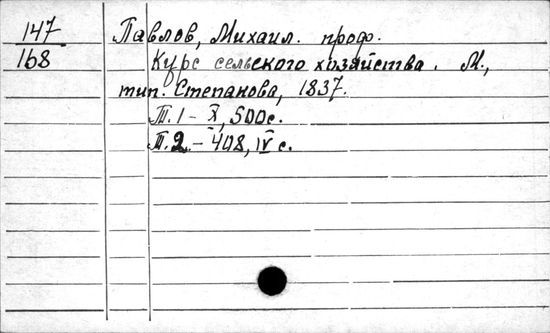 147
168
Павлов, Михаил. проф.
Курс сельского хозяйства. М.,
тип. Степанова, 1837.
Т.1 - X, 500с.
Т.2. - 408, IV с.